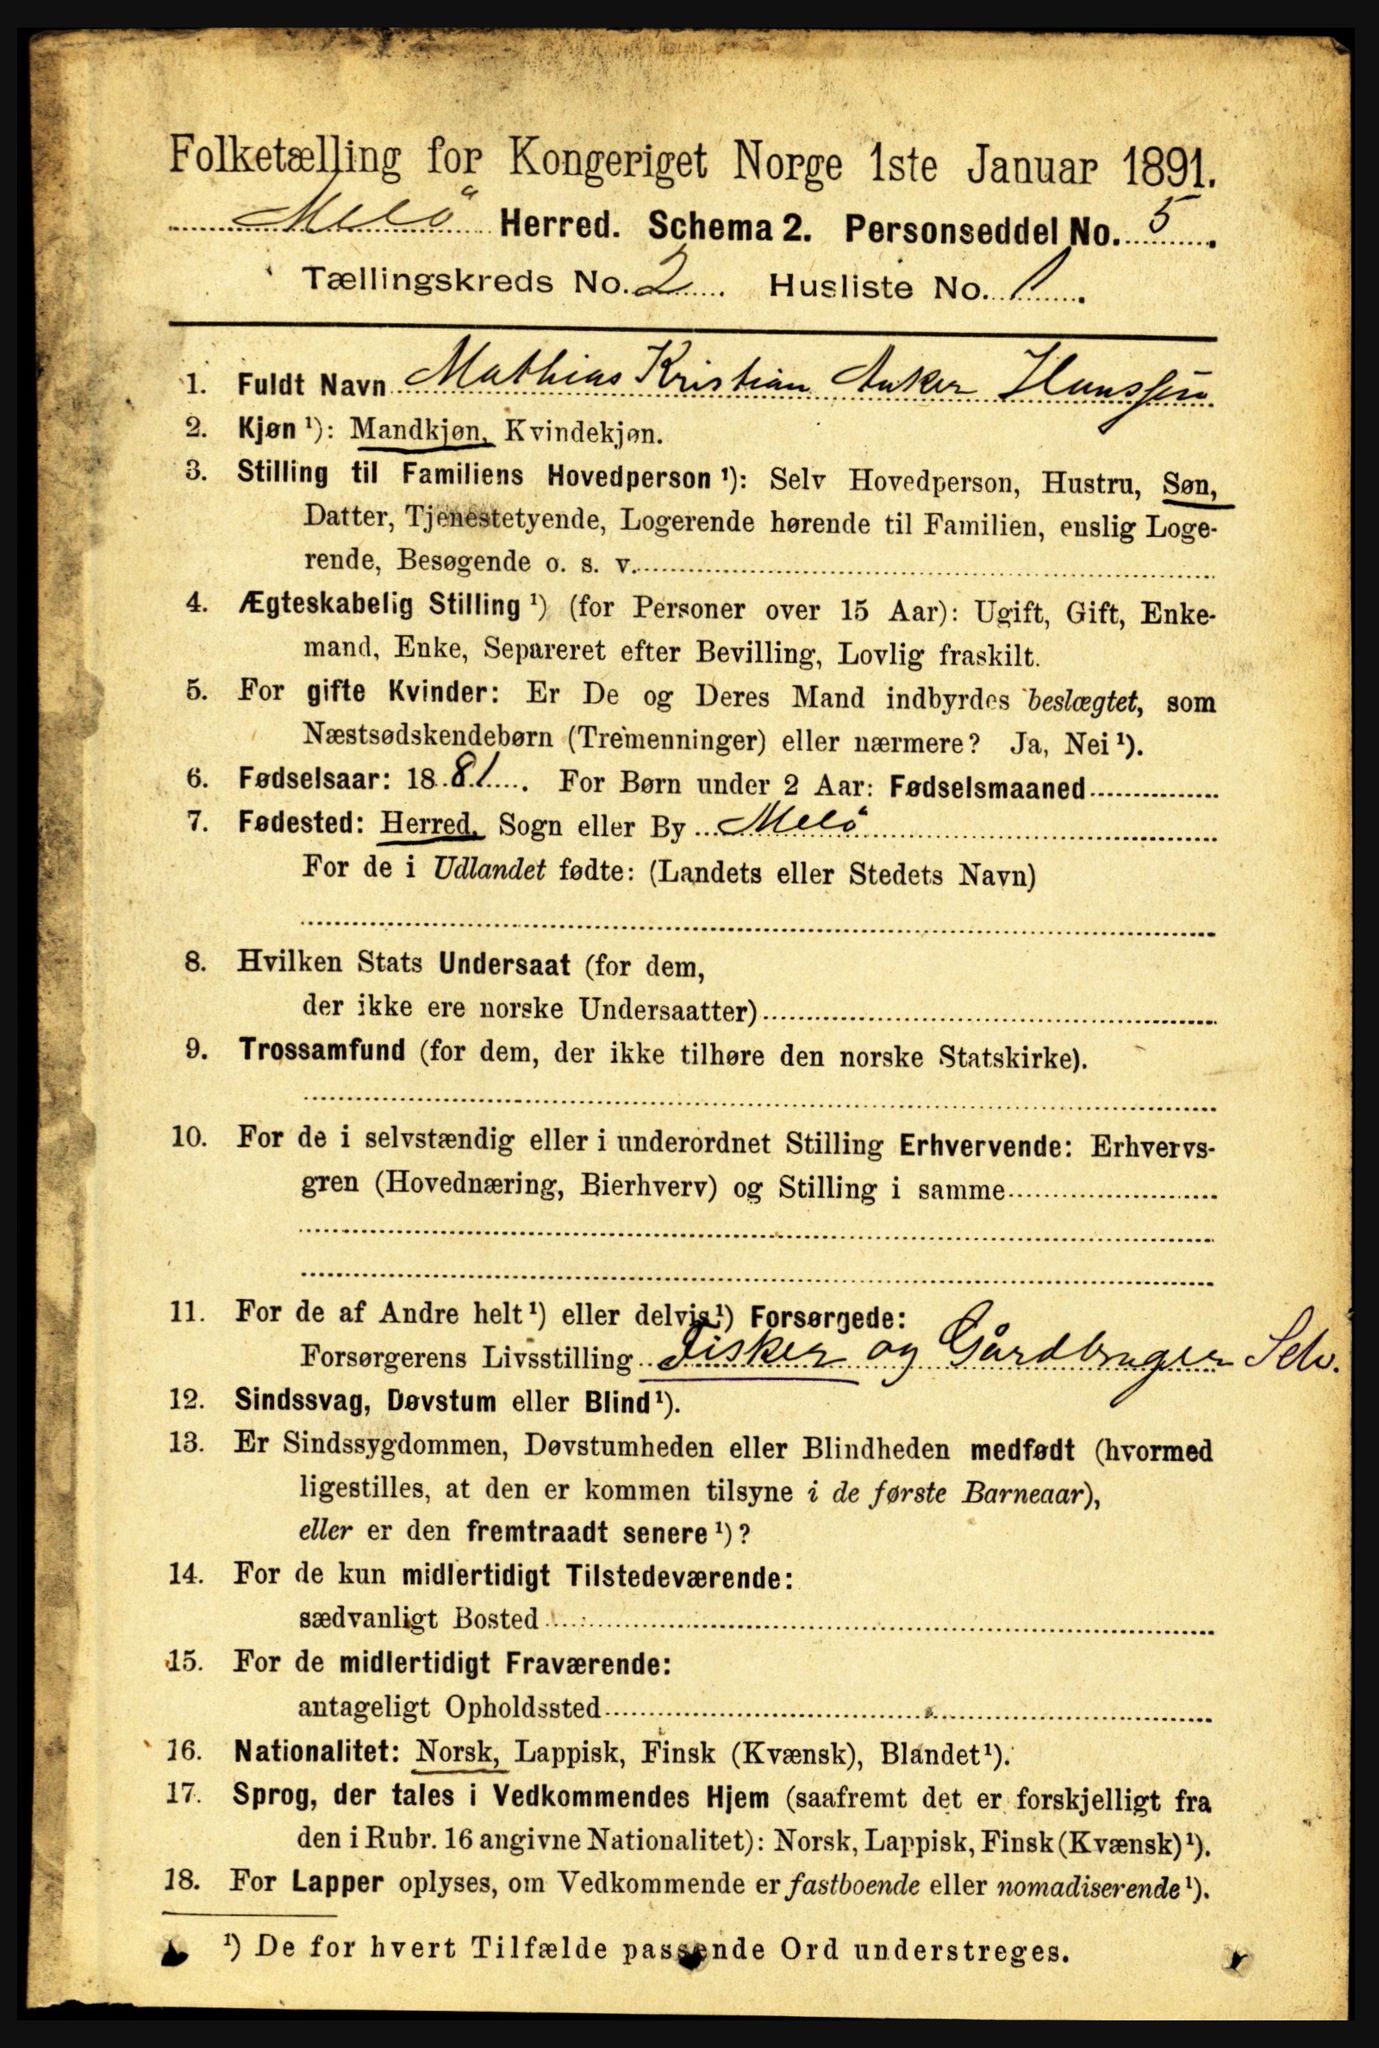 Folketælling for Kongeriget Norge 1ste Januar 1891.
Melö Herred. Schema 2. Personseddel No. 5.
Tællingskreds No. 2. Husliste No. 1.
1. Fuldt Navn Mathias Kristian Anker Hanssen
2. Kjøn ¹): Mandkjøn, Kvindekjøn.
3. Stilling til Familiens Hovedperson ¹): Selv Hovedperson, Hustru, Søn,
Datter, Tjenestetyende, Logerende hørende til Familien, enslig Loge-
rende, Besøgende o. s. v.
4. Ægteskabelig Stilling ¹) (for Personer over 15 Aar): Ugift, Gift, Enke-
mand, Enke, Separeret efter Bevilling, Lovlig fraskilt.
5. For gifte Kvinder: Er De og Deres Mand indbyrdes beslægtet, som
Næstsødskendebørn (Tremenninger) eller nærmere? Ja, Nei ¹).
6. Fødselsaar: 1881. For Børn under 2 Aar: Fødselsmaaned
7. Fødested: Herred, Sogn eller By Melö
For de i Udlandet fødte: (Landets eller Stedets Navn)
8. Hvilken Stats Undersaat (for dem,
der ikke ere norske Undersaatter)
9. Trossamfund (for dem, der ikke tilhøre den norske Statskirke).
10. For de i selvstændig eller i underordnet Stilling Erhvervende: Erhvervs-
gren (Hovednæring, Bierhverv) og Stilling i samme
11. For de af Andre helt ¹) eller delvis ¹) Forsørgede:
Forsørgerens Livsstilling Fisker og Gårdbruger Selv.
12. Sindssvag, Døvstum eller Blind ¹).
13. Er Sindssygdommen, Døvstumheden eller Blindheden medfødt (hvormed
ligestilles, at den er kommen tilsyne i de første Barneaar),
eller er den fremtraadt senere ¹)?
14. For de kun midlertidigt Tilstedeværende:
sædvanligt Bosted
15. For de midlertidigt Fraværende:
antageligt Opholdssted
16. Nationalitet: Norsk, Lappisk, Finsk (Kvænsk), Blandet ¹).
17. Sprog, der tales i Vedkommendes Hjem (saafremt det er forskjelligt fra
den i Rubr. 16 angivne Nationalitet): Norsk, Lappisk, Finsk (Kvænsk) ¹).
18. For Lapper oplyses, om Vedkommende er fastboende eller nomadiserende ¹).
¹) De for hvert Tilfælde passende Ord understreges.